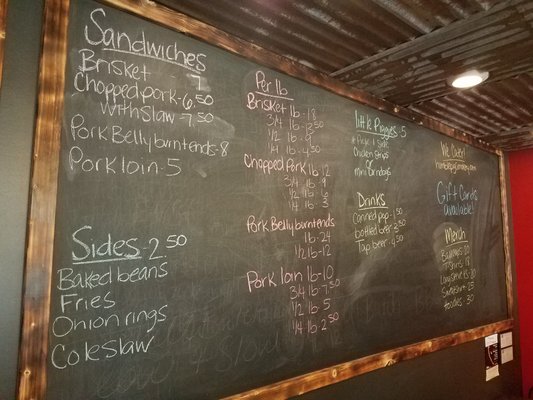 Sandwiches
Brisket 7
Chopped pork - 6.50
with Slaw - 7.50
Pork Belly burntends - 8
Pork loin - 5
Sides - 2.50
Baked beans
Fries
Onion rings
Coleslaw
Per lb
Brisket lb - 18
3/4 lb - 13.50
1/2 lb - 9
1/4 lb - 4.50
Chopped Pork lb 12
3/4 lb - 9
1/2 lb - 6
1/4 lb - 3
Pork Belly burntends
lb - 24
1/2 lb - 12
Pork loin lb - 10
3/4 lb - 7.50
1/2 lb - 5
1/4 lb - 2.50
little Piggies - 5
1 side
Chicken strips
or
mini Corndogs
Drinks
Canned pop - 1.50
bottled beer 3.50
Tap beer - 4.50
We Cater!
Gift Cards
available!
Merch
T-Shirts
Sweatshirt - 25
hoodies - 30